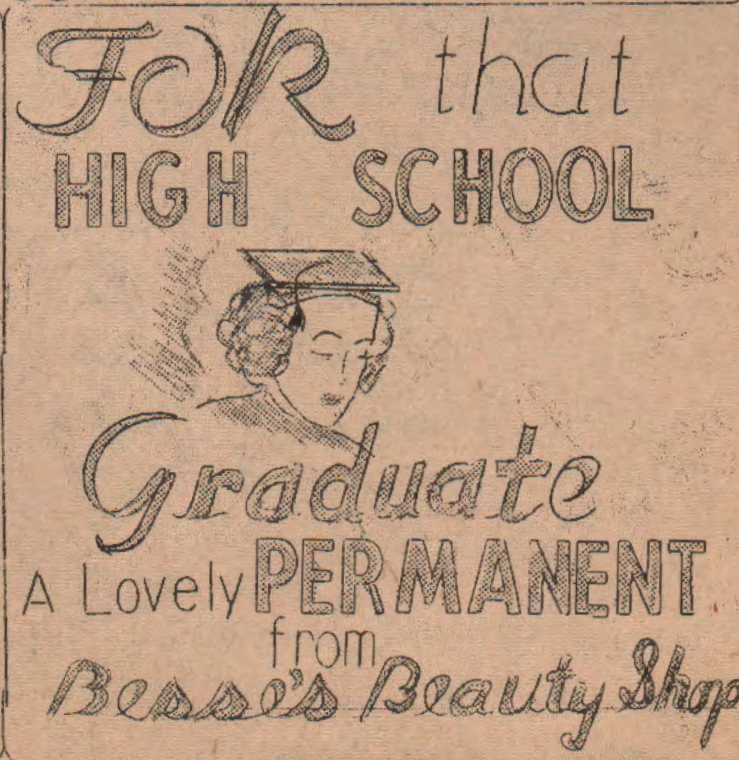 FOR that
HIGH SCHOOL
Graduate
A Lovely PERMANENT
from
Besse's Beauty Shop